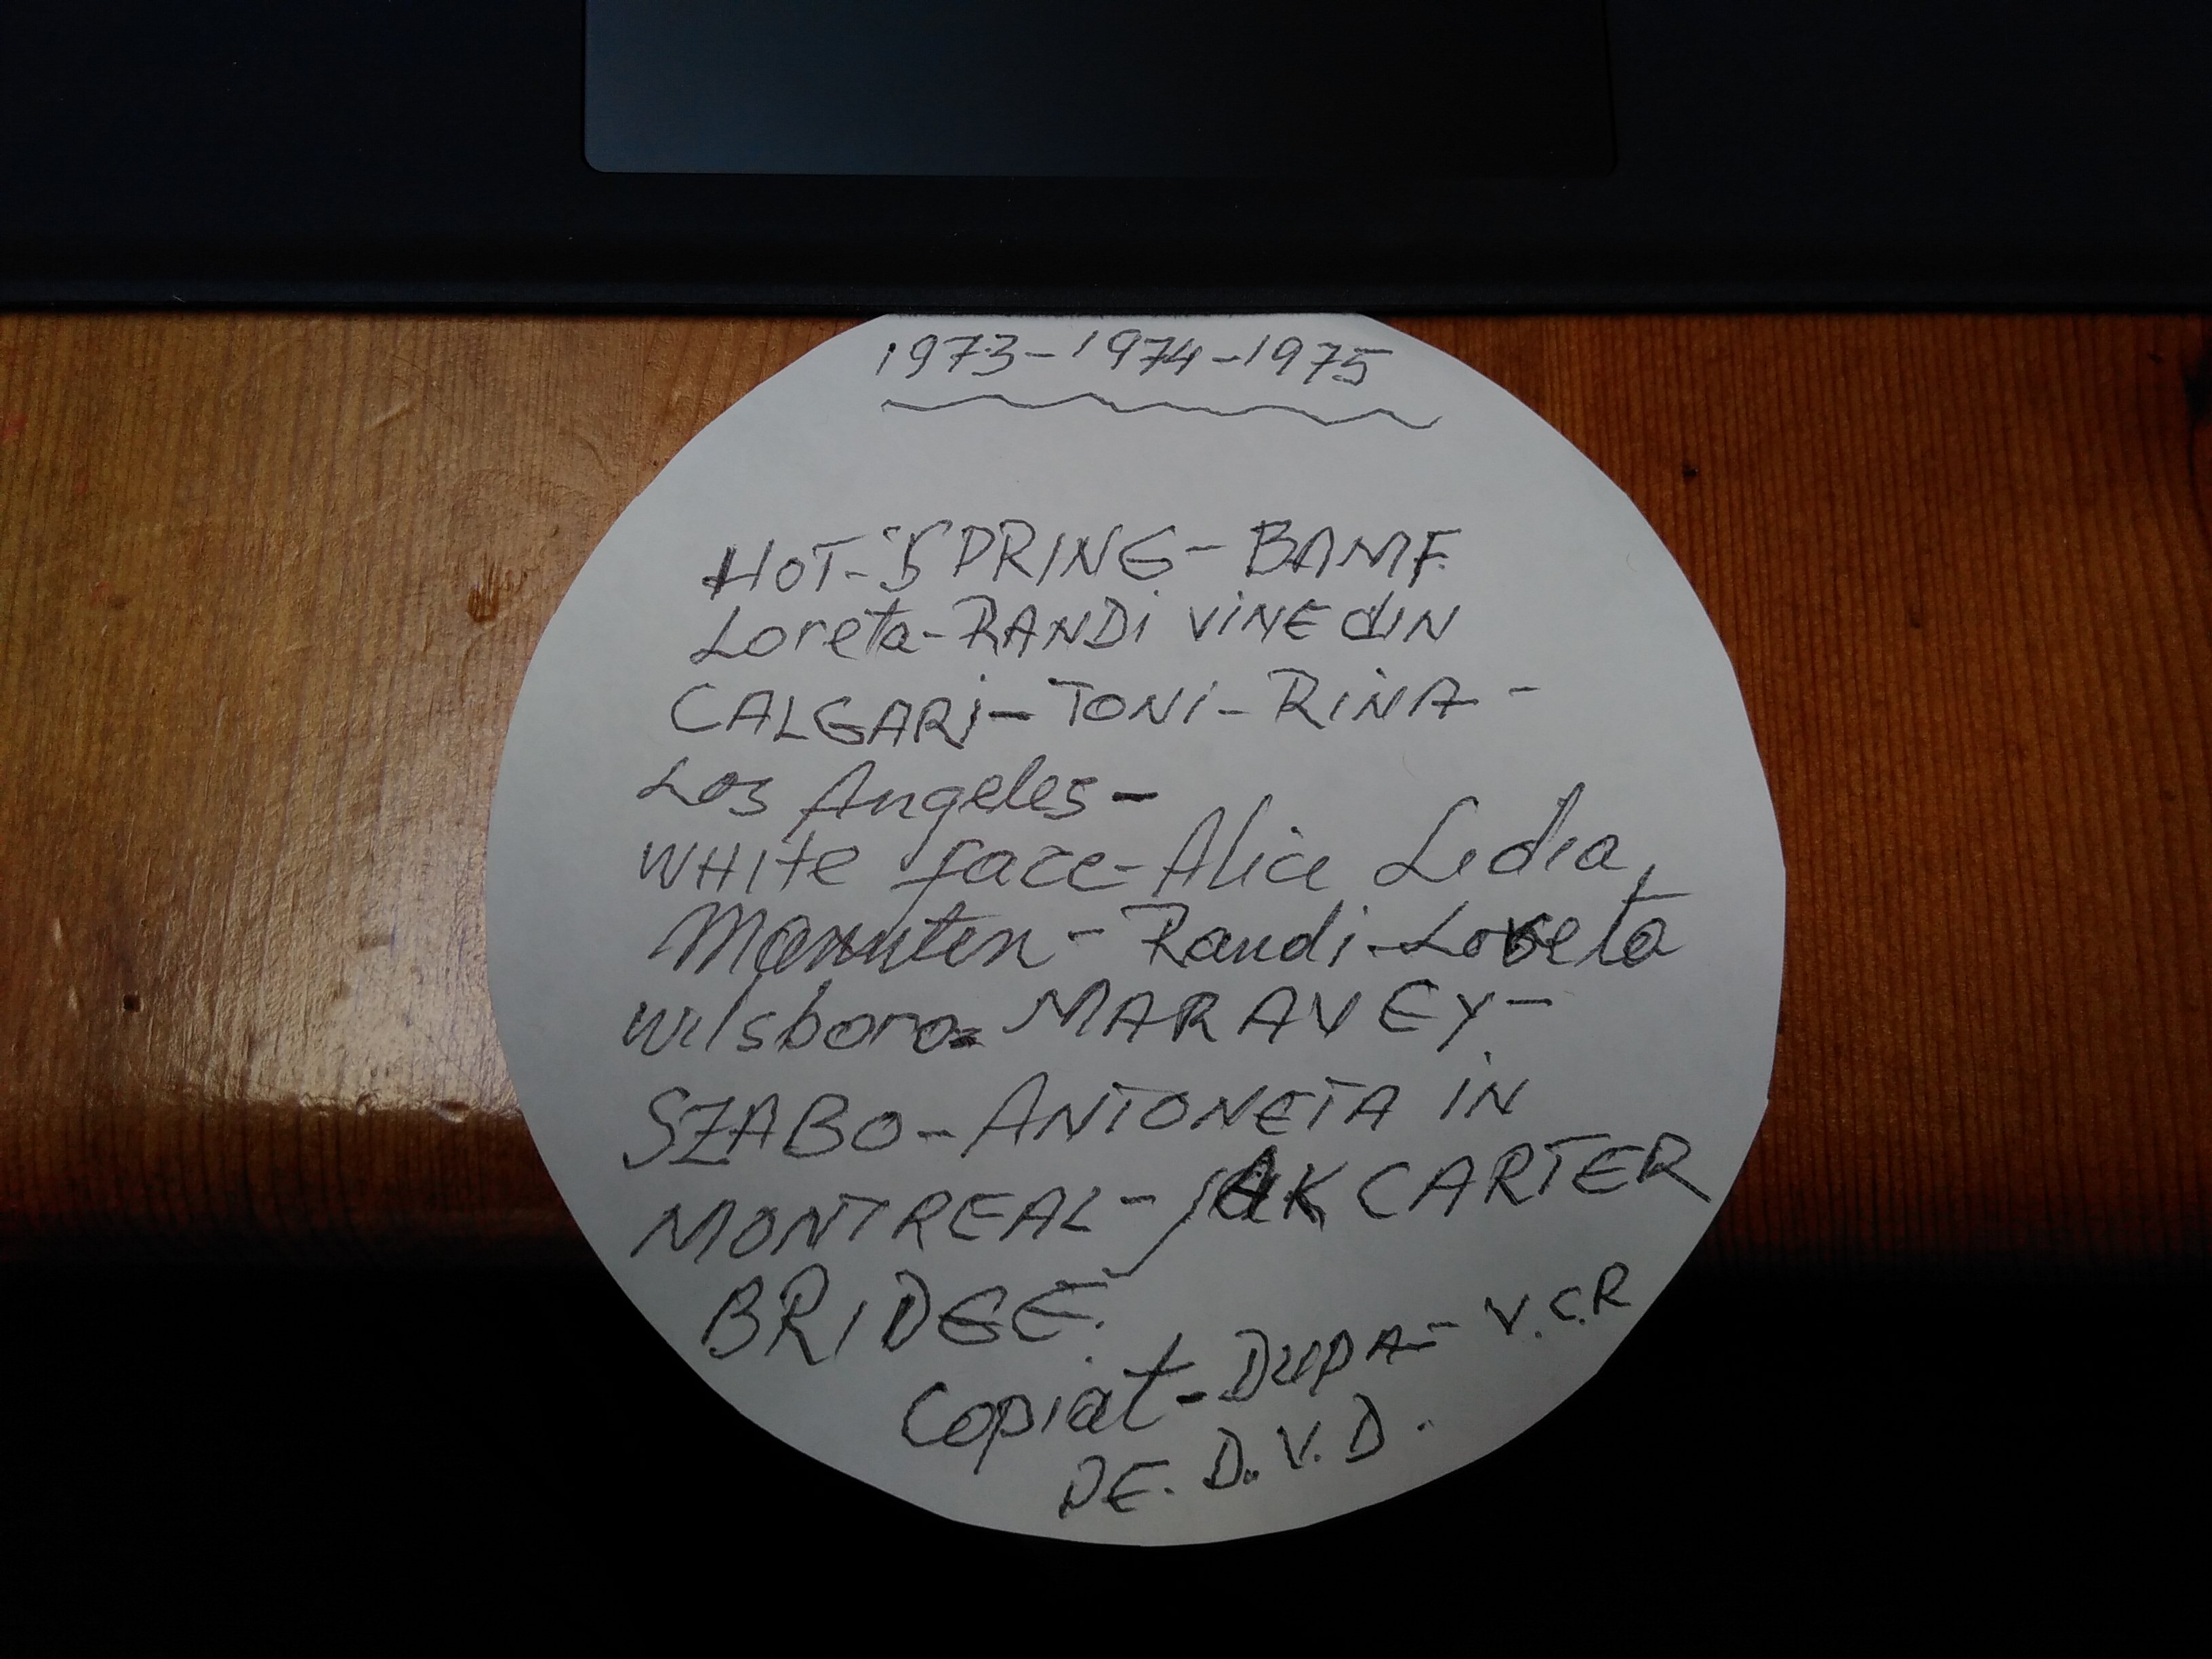 1973-1974-1975
HOT-SPRING-BAMF.
Loreta-RANDi ViNE dIN
CALGARi-TONi-RiNA-
Los Angeles-
WHite face-Alice Lidia,
Randi-Loreta
Wilsboro=MARAVEY-
SZABO-ANTONETA iN
MONTREAL-JAK CARTER
BRIDGE.
Copiat-DUPA-V.C.R
DE.D.V.D.